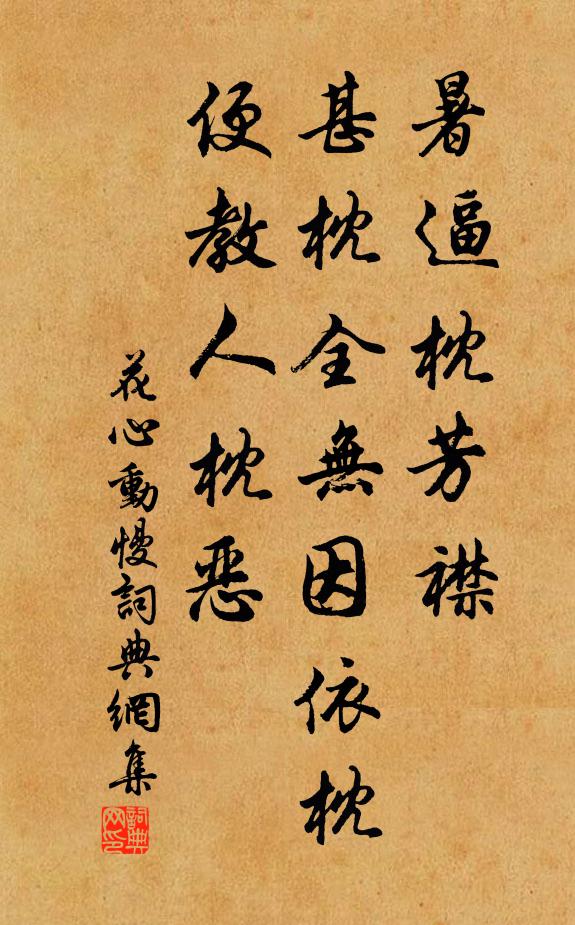 暑逼枕芳襟
甚枕全無因依枕
便教人枕恶
花心動慢詞典網集
詞典网印